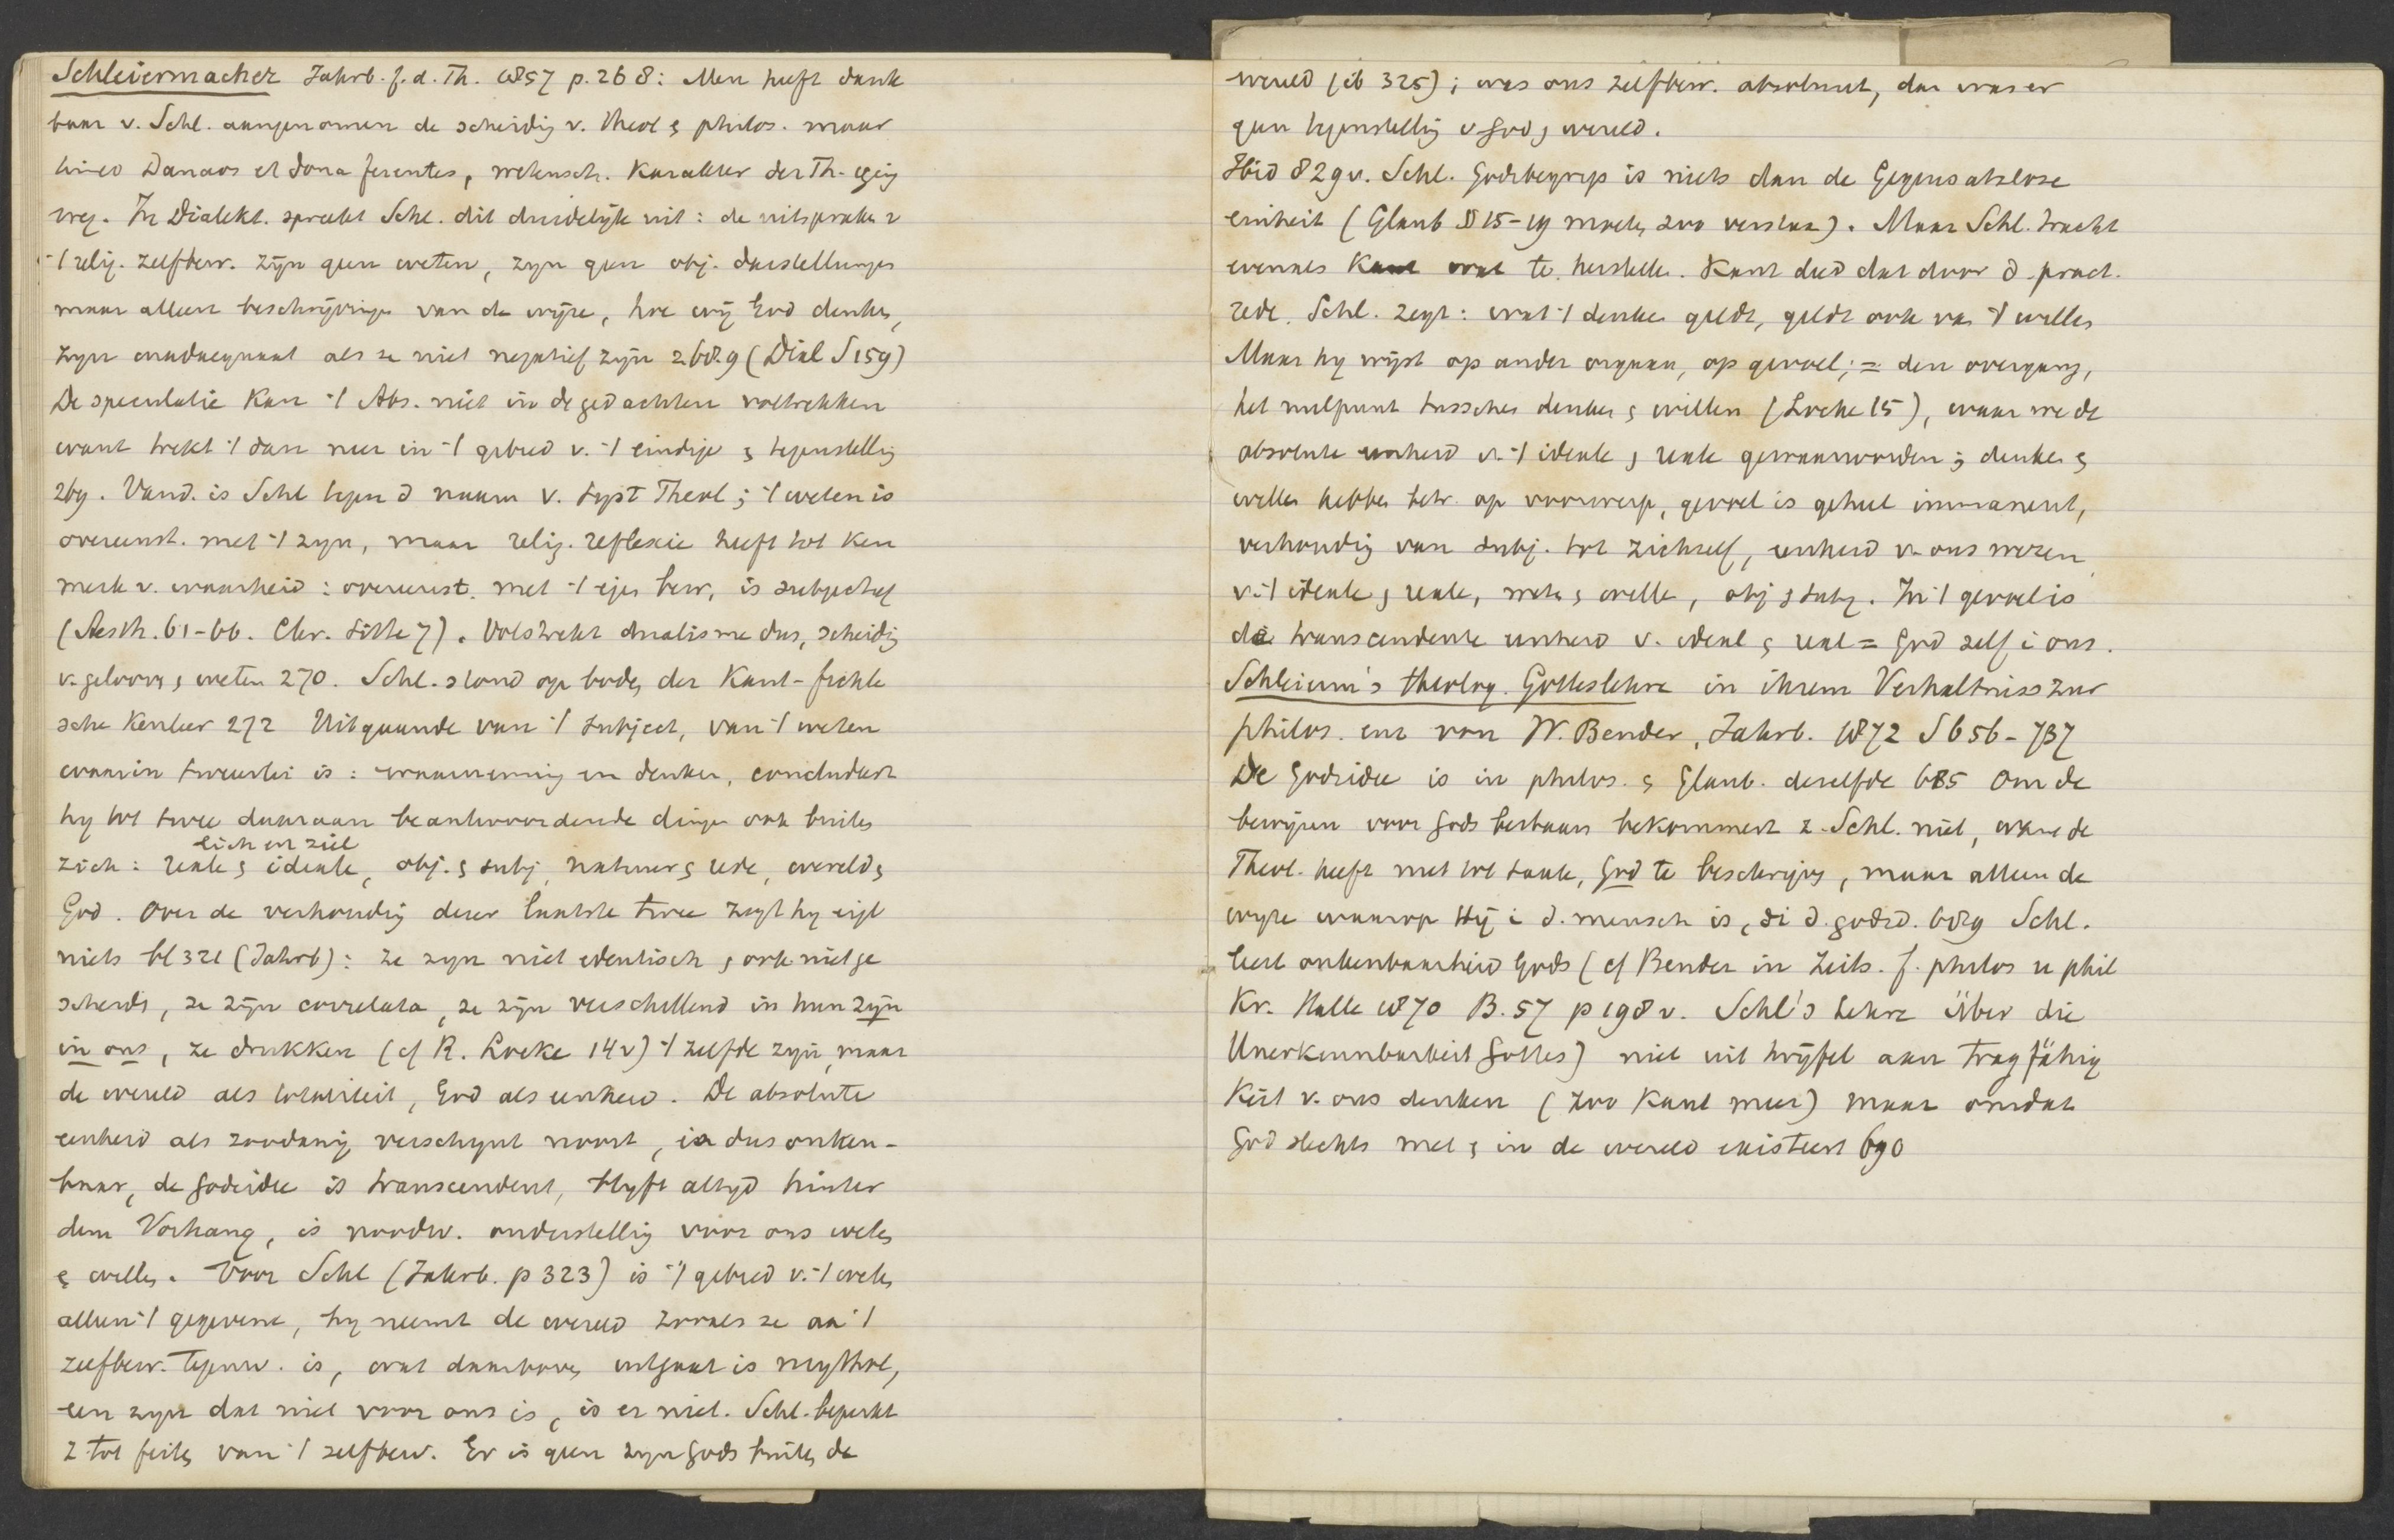 Schleiermacher Jahrb. f. d. Th. 1857 p. 268: Men heeft dank
baar v. Schl. aangenomen de scheidig v. Theol & philos. maar
timeo Danaos et dona ferentes, wetensch. karakter der Th. ging
weg. In Dialekt. spreekt Schl. dit duidelijk uit: de uitspraken v
't relig. zelfbew. zijn geen weten, zyn geen obj. darstellungen
maar alleen beschrijvingen van de wijze, hoe wij God denken,
zyn inadaequaat als ze niet negatief zijn 268.9 (Dial S 159)
De speculatie kan 't Abs. niet in de gedachten voltrekken
want trekt 't dan neer in 't gebied v. 't eindige & tegenstellig
269. Vand. is Schl tegen d naam v. syst Theol; 't weten is
overeenst. met 't zyn, maar relig. reflexie heeft tot ken
merk v. waarheid: overeenst. met 't eigen bew, is subjectief
(Aesth. 61-66. Chr. Sitte 7). Volstrekt dualisme dus, scheidig
v. gelooven & weten 270. Schl. stond op bodem der Kant-fichte
sche Kenleer 272 Uitgaande van 't subject, van 't weten
waarin tweeerlei is: waarneming en denken, concludeert
hy tot twee daaraan beantwoordende dingen ook buiten
lich en ziel
zich: reale & ideale, obj. & subj, natuur & rede, wereld &
God. Over de verhoudig dezer laatste twee zegt hy eigl
niets bl 321 (Jahrb): ze zyn niet identisch & ook niet ge
scheiden, ze zijn correlata, ze zijn verschillend in hun zijn
in ons, ze drukken (cf R. Locke 14v) 't zelfde zijn, maar
de wereld als totaliteit, God als eenheid. De absolute
eenheid als zoodanig verschynt nooit, is dus onken-
baar, de godsidee is transcendent, blyft altyd hinter
dem Vorhang, is noodw. onderstellig voor ons weten
& willen. Voor Schl (Jahrb. p 323) is 't gebied v. 't weten
alleen 't gegevene, hy neemt de wereld zooals ze aan 't
zelfbew. tegenw. is, wat daarboven uitgaat is mythol,
een zyn dat niet voor ons is, is er niet. Schl. beperkt
z tot feiten van 't zelfbew. Er is geen zyn Gods buiten de
wereld (ib 325); was ons zelfbew. absoluut, dan was er
geen tegenstellig v God & wereld.
Ibid 829v. Schl. Godsbegrip is niets dan de Gegensatzlose
einheit (Glaub § 15-19 moeten zoo verstaan). Maar Schl. tracht
evenals Kant wat te herstellen. Kant deed dat door d pract.
rede. Schl. zegt: wat 't denken geldt, geldt ook van 't willen
Maar hy wijst op ander orgaan, op gevoel; = den overgang,
het nulpunt tusschen denken & willen (Locke 15), waar we de
absolute eenheid v. 't ideale & reale gewaarworden; denken &
willen hebben betr. op voorwerp, gevoel is geheel immanent,
verhoudig van subj. tot zichzelf, eenheid v. ons wezen
v. 't ideale & reale, weten & willen, obj & subj. In 't gevoel is
de transcendente eenheid v. ideal & real = God zelf i ons.
Schleierm's theolog. Gotteslehre in ihrem Verhaltniss zur
philos. enz von W. Bender, Jahrb. 1872 S 656-737
De godsidee is in philos. & Glaub. dezelfde 685 Om de
bewijzen voor Gods bestaan bekommert z. Schl. niet, want de
Theol. heeft niet tot taak, God te beschrijven, maar alleen de
wyze waarop Hij i d. mensch is, di d. godsd. 689 Schl.
leert onkenbaarheid Gods (cf Bender in Zeits. f. philos u phil
Kr. Halle 1870 B. 57 p 198 v. Schl's Lehre über die
Unerkennbarkeit Gottes) niet uit twijfel aan Tragfähig
keit v. ons denken (zoo Kant meer) maar omdat
God slechts met & in de wereld existeert 690